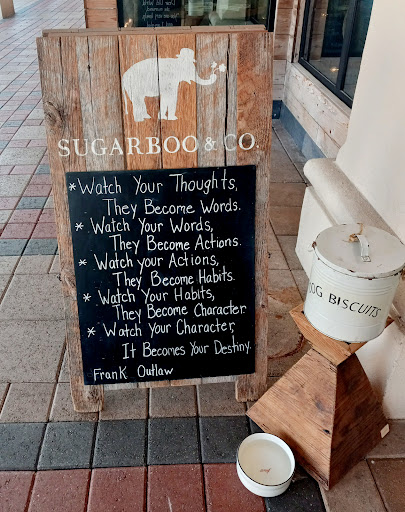 SUGARBOO & CO.
* Watch Your Thoughts,
They Become Words.
* Watch Your Words,
They Become Actions.
* Watch your Actions,
They Become Habits.
* Watch Your Habits,
They Become Character.
* Watch Your Character,
It Becomes Your Destiny.
Frank Outlaw
OG BISCUITS